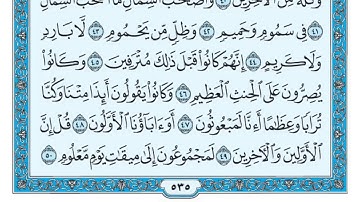 وَثُلَّةٌ مِّنَ ٱلْءَاخِرِينَ ٤٠ وَأَصْحَٰبُ ٱلشِّمَالِ مَآ أَصْحَٰبُ ٱلشِّمَالِ
٤١ فِى سَمُومٍ وَحَمِيمٍ ٤٢ وَظِلٍّ مِّن يَحْمُومٍ ٤٣ لَّا بَارِدٍ
وَلَا كَرِيمٍ ٤٤ إِنَّهُمْ كَانُوا۟ قَبْلَ ذَٰلِكَ مُتْرَفِينَ ٤٥ وَكَانُوا۟
يُصِرُّونَ عَلَى ٱلْحِنثِ ٱلْعَظِيمِ ٤٦ وَكَانُوا۟ يَقُولُونَ أَئِذَا مِتْنَا وَكُنَّا
تُرَابًا وَعِظَٰمًا أَءِنَّا لَمَبْعُوثُونَ ٤٧ أَوَءَابَآؤُنَا ٱلْأَوَّلُونَ ٤٨ قُلْ إِنَّ
ٱلْأَوَّلِينَ وَٱلْءَاخِرِينَ ٤٩ لَمَجْمُوعُونَ إِلَىٰ مِيقَٰتِ يَوْمٍ مَّعْلُومٍ ٥٠
٥٣٥